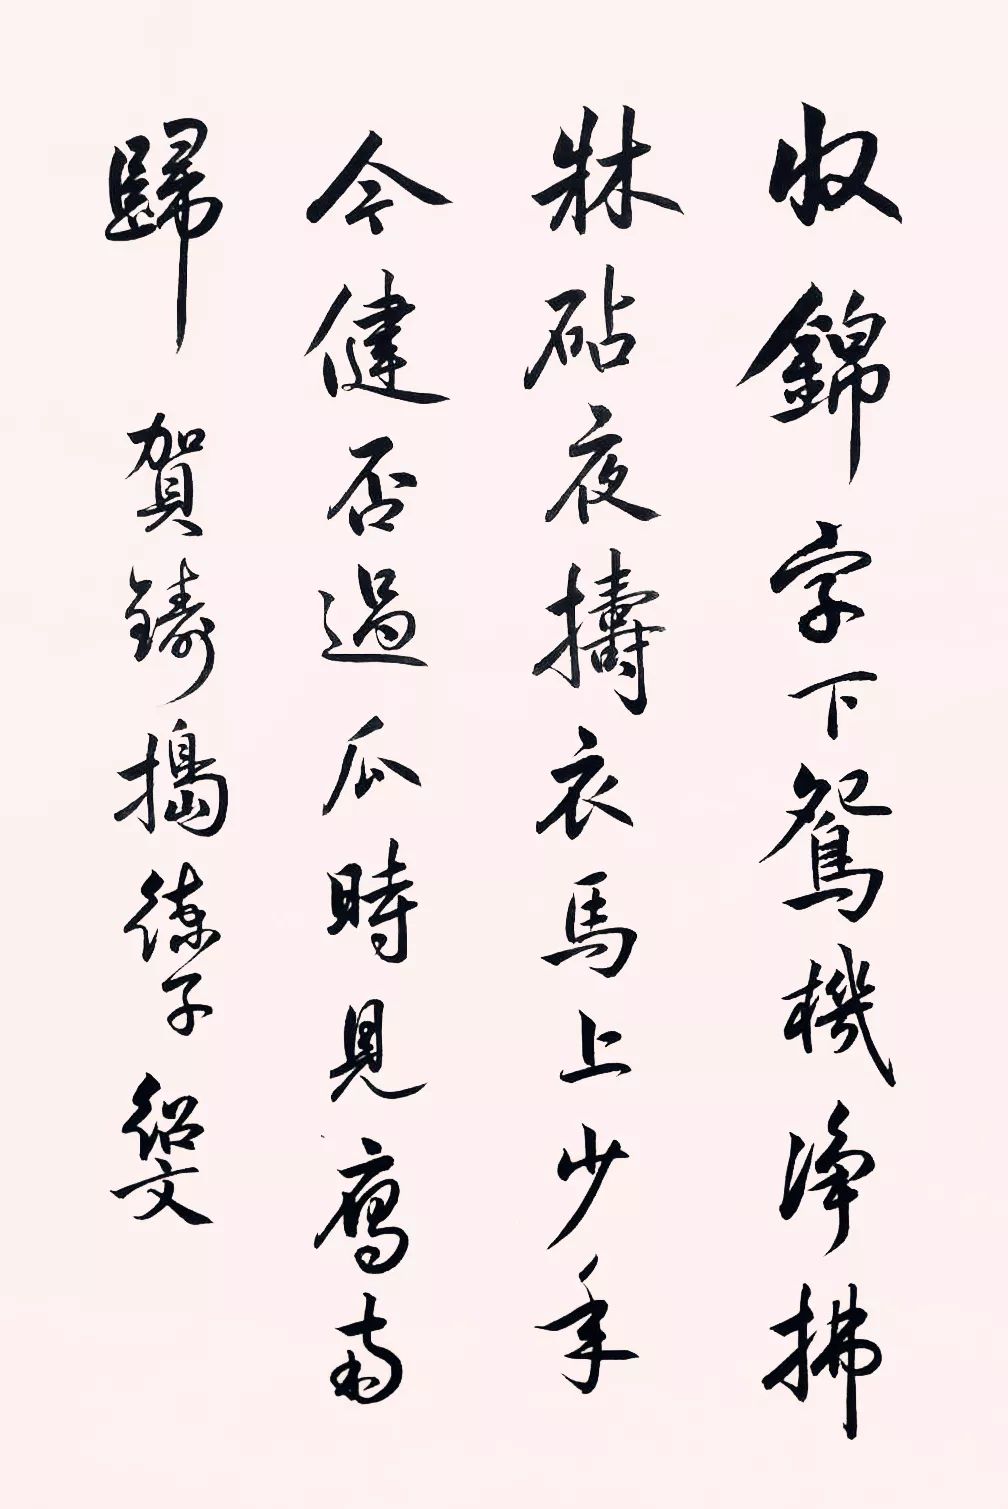 收錦字下鴛機净拂
牀砧夜擣衣馬上少年
今健否過瓜時見雁南
歸 賀鑄搗練子 紹文